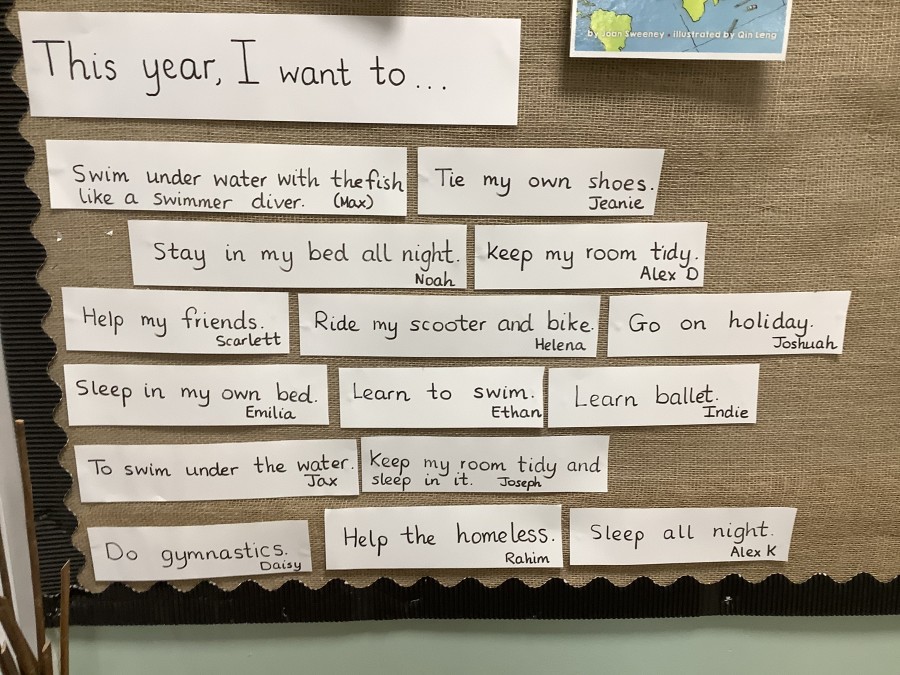 by Joan Sweeney • illustrated by Qin Leng
This year, I want to...
Swim under water with the fish
like a swimmer diver. (Max)
Tie my own shoes.
Jeanie
Stay in my bed all night.
Noah
Keep my room tidy.
Alex D
Help my friends.
Scarlett
Ride my scooter and bike.
Helena
Go on holiday.
Joshuah
Sleep in my own bed.
Emilia
Learn to swim.
Ethan
Learn ballet.
Indie
To swim under the water.
Jax
Keep my room tidy and
sleep in it. Joseph
Do gymnastics.
Daisy
Help the homeless.
Rahim
Sleep all night.
Alex K